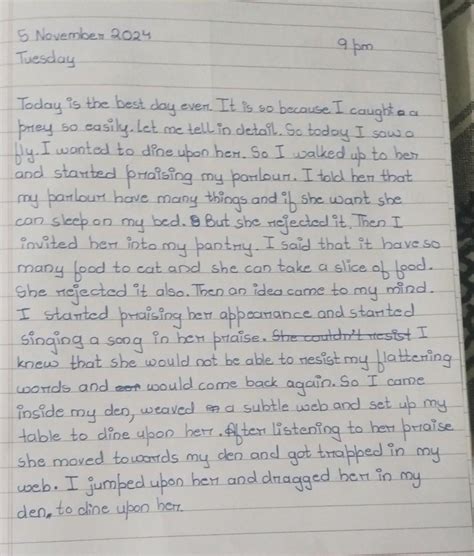 5 November 2024
9 pm
Tuesday
Today is the best day ever. It is so because I caught a
prey so easily. Let me tell in detail. So today I saw a
fly. I wanted to dine upon her. So I walked up to her
and started praising my parlour. I told her that
my parlour have many things and if she want she
can sleep on my bed. But she rejected it. Then I
invited her into my pantry. I said that it have so
many food to eat and she can take a slice of food.
She rejected it also. Then an idea came to my mind.
I started praising her appearance and started
singing a song in her praise. She couldn't resist I
knew that she would not be able to resist my flattering
words and would come back again. So I came
inside my den, weaved a subtle web and set up my
table to dine upon her. After listening to her praise
she moved towards my den and got trapped in my
web. I jumped upon her and dragged her in my
den. to dine upon her.